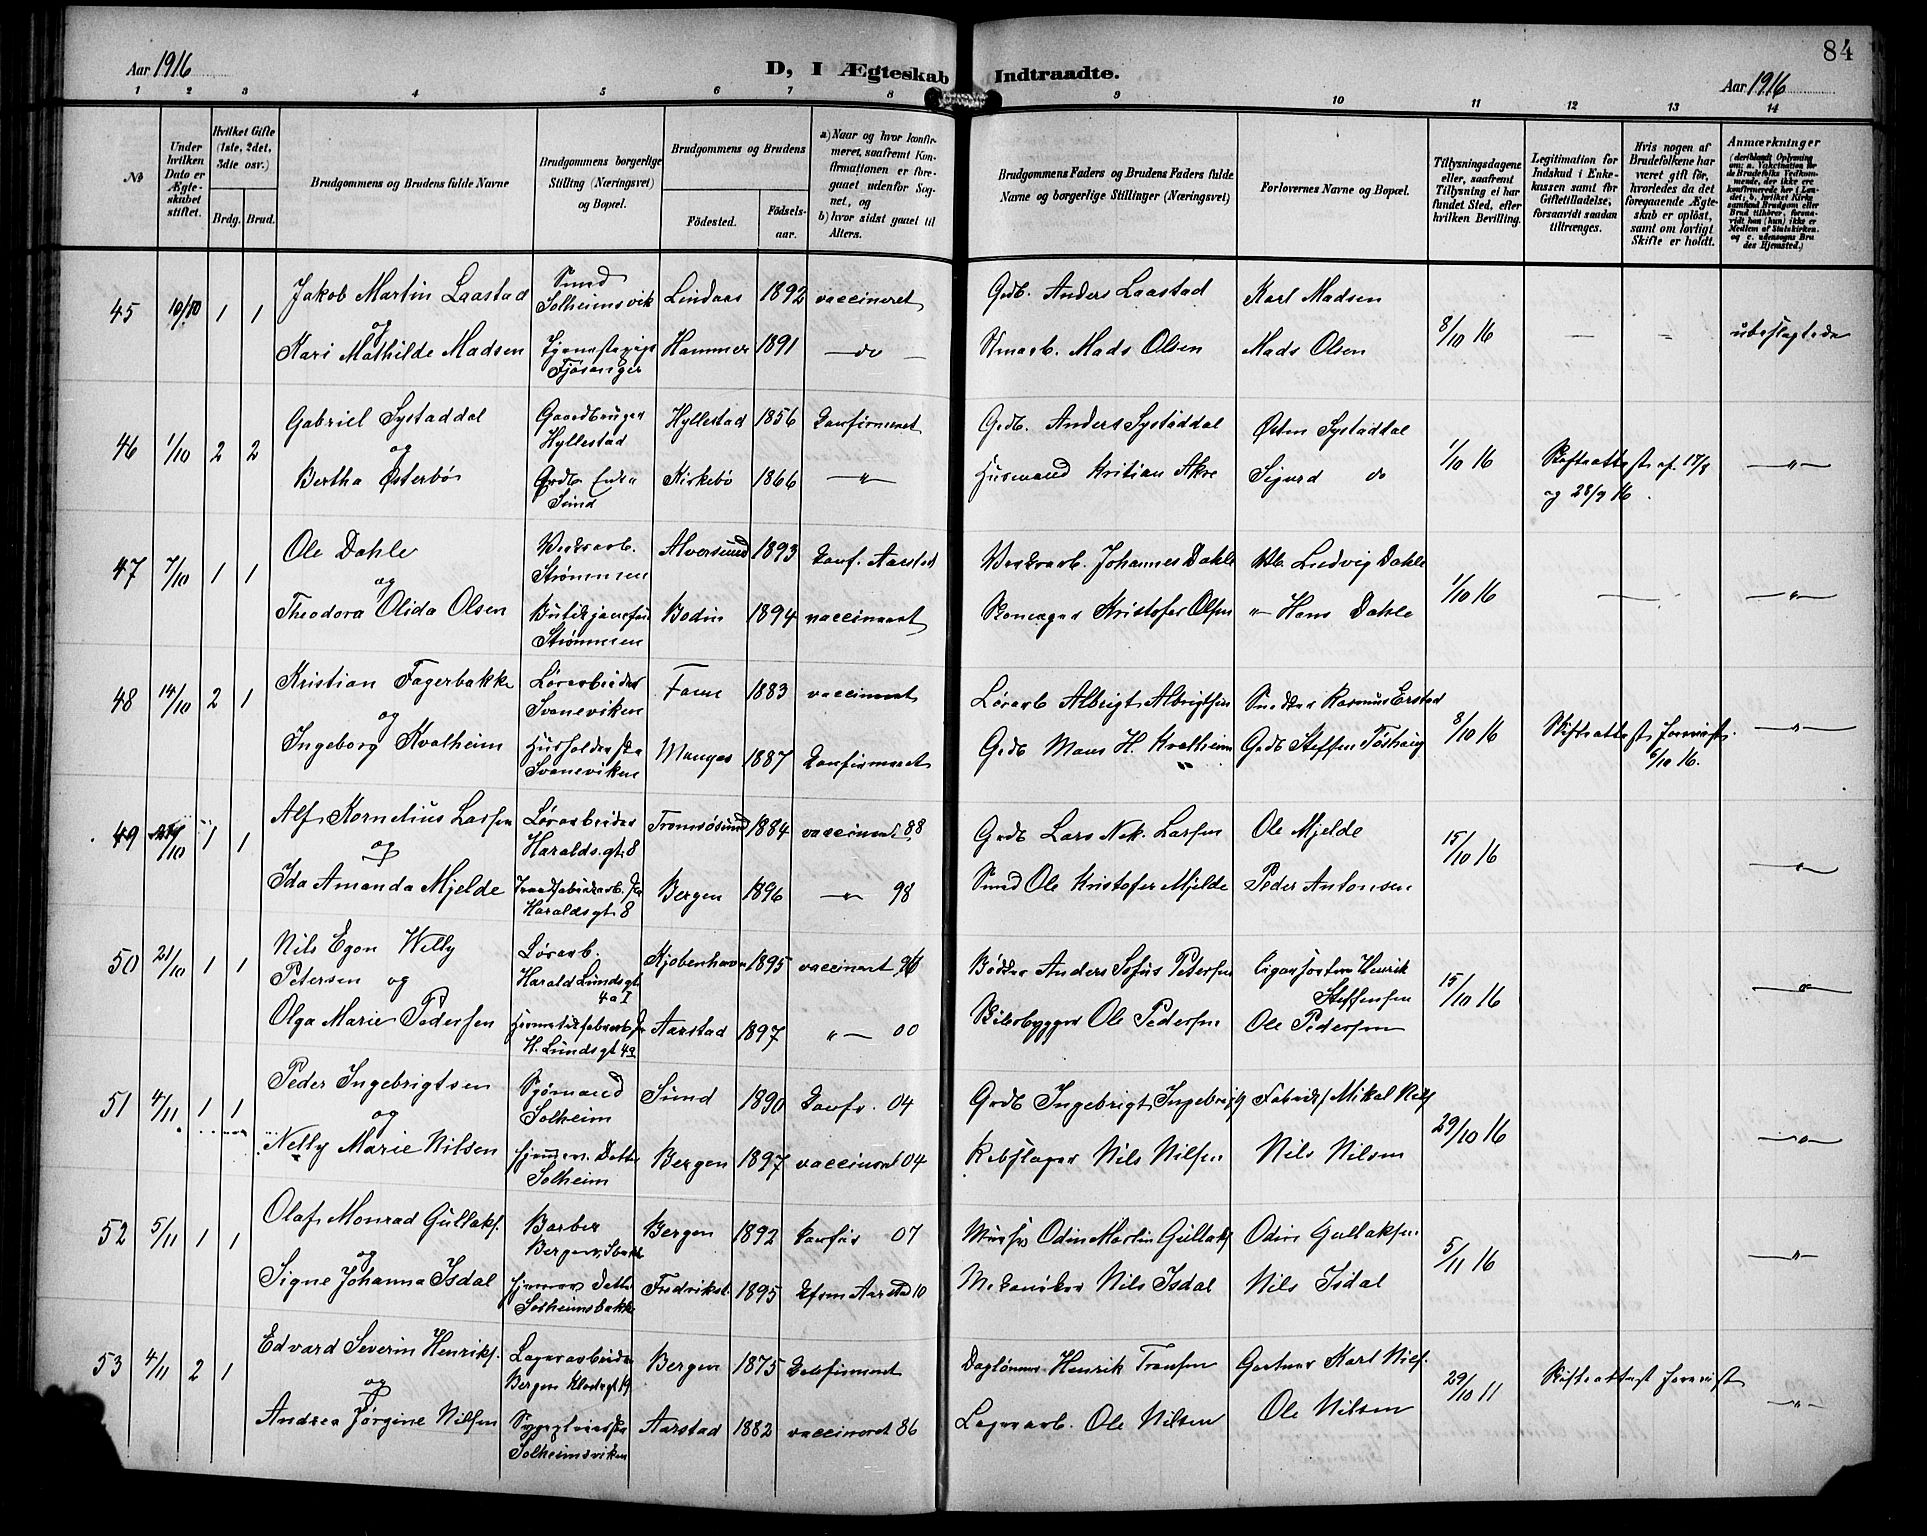 84
Aar 1916
D, I Ægteskab Indtraadte.
Aar 1916
1 2 3 4 5 6 7 8 9 10 11 12 13 14
No
Under hvilken Dato er Ægteskabet stiftet.
Hvilket Gifte (1ste, 2det, 3die osv.)
Brdg. Brud.
Brudgommens og Brudens fulde Navne
Brudgommens borgerlige Stilling (Næringsvei) og Bopæl.
Brudgommens og Brudens
Fødested. Fødselsaar.
a) Naar og hvor konfirmeret, saafremt Konfirmationen er foregaaet udenfor Sognet, og
b) hvor sidst gaaet til Alters.
Brudgommens Faders og Brudens Faders fulde Navne og borgerlige Stillinger (Næringsvei)
Forlovernes Navne og Bopæl.
Tillysningsdagene eller, saafremt Tillysning ei har fundet Sted, efter hvilken Bevilling.
Legitimation for Indskud i Enkekassen samt for Giftetilladelse, forsaavidt saadan tiltrænges.
Hvis nogen af Brudefolkene har været gift før, hvorledes da det foregaaende Ægteskab er opløst, samt om lovligt Skifte er holdt.
Anmærkninger
45 10/10 1 1 Jakob Martin Laastad Smed Solheimsvik Lindaas 1892 vaccineret Grdb. Anders Laastad Karl Madsen 8/10 16 — — ubeslægtede
og
Kari Mathilde Madsen Fjøsanger Hammer 1891 — do — Mads Olsen Mads Olsen
46 1/10 2 2 Gabriel Systaddal Gaardbruger Hyllestad Hyllestad 1856 Konfirmeret Grdb. Anders Systaddal Østen Systaddal 1/10 16 Skifteattest af 17/8 og 28/9 16. —"—
og
Bertha Østerbø Grdb. Enke Sund Kirkebø 1866 —"— Husmand Kristian Akre Sigurd do
47 7/10 1 1 Ole Dahle Strømmen Alversund 1893 Konf. Aarstad Johannes Dahle Ludvig Dahle 1/10 16 — —"—
og
Theodora Olida Olsen Strømmen Bodin 1894 vaccineret Kristofer Olsen "— Hans Dahle
48 14/10 2 1 Kristian Fagerbakke Løsarbeider Svaneviken Fane 1883 vaccineret Løsarb Albrigt Albrigtsen Rasmus Erstad 8/10 16 Skifteattest forevist 6/10 16. —"—
og
Ingeborg Kvalheim Svaneviken Manger 1887 Konfirmeret Grdb Mons H. Kvalheim Grdb Steffen Toskaug
49 1 1 Alf Kornelius Larsen Løsarbeider Haralds.gt 8 Tromsøsund 1884 vaccineret 88 Grdb Lars Nik. Larsen Ole Mjelde 15/10 16 —"—
og
Ida Amanda Mjelde Haraldsgt 8 Bergen 1896 —"— 98 Smed Ole Kristofer Mjelde Peder Antonsen
50 21/10 1 1 Nils Egon Willy Petersen og Løsarb. Harald Lundsgt 4a I Kjøbenhavn 1895 vaccineret 96 Bødker Anders Sofus Petersen Cigarsorterer Henrik Steffensen 15/10 16 —"—
Olga Marie Pedersen H. Lundsgt 4a Aarstad 1897 "— 00 Ole Pedersen Ole Pedersen
51 4/11 1 1 Peder Ingebrigtsen Sjømand Solheim Sund 1890 Konfr. 04 Grdb Ingebrigt Ingebrigts Mikal Nils 29/10 16 —"—
og
Nelly Marie Nilsen Hjemmev. Datter Solheim Bergen 1897 vaccineret 04 Rebslager Nils Nilsen Nils Nilsen
52 5/11 1 1 Olaf Monrad Gullaks. Barber Bergen Bergen 1892 Konfir 07 Odin Martin Gullaks Odin Gullaksen 5/11 16 —"—
og
Signe Johanna Isdal Hjemmev Datter Solheimsbakke Fredrikst. 1895 Aarstad 10 Mekaniker Nils Isdal Nils Isdal
53 4/11 2 1 Edvard Severin Henriks. Lagerarbeider Bergen Bergen 1875 Konfirmeret Daglønner Henrik Transen Gartner Karl Nils. 29/10 11 Skifteattest forevist —"—
og
Andrea Jørgine Nilsen Solheimsviken Aarstad 1882 vaccineret 86 Lagerarb. Ole Nilsen Ole Nilsen